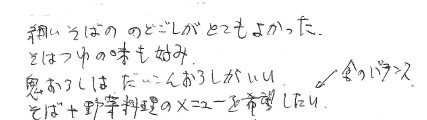 細いそばの のどごしがとてもよかった.
そばつゆの味も好み.
鬼おろしは だいこんおろしがいい.
食のバランス
そば+野菜料理のメニューを希望したい.